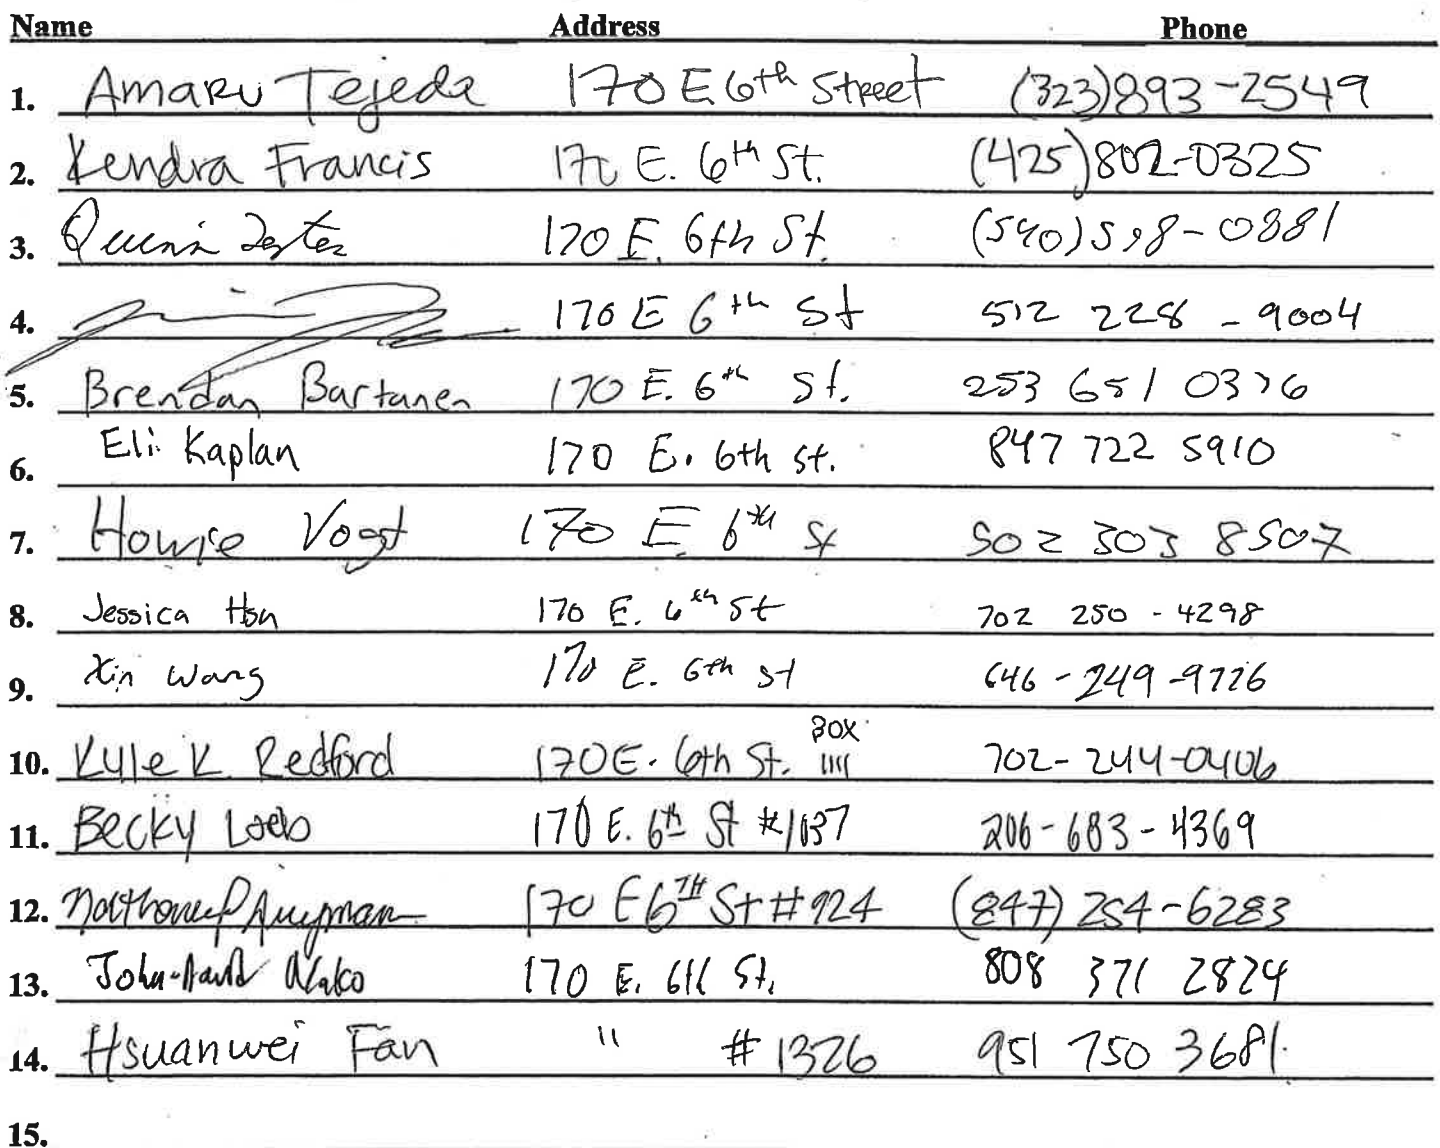 Name Address Phone
1. Amaru Tejeda 170 E. 6th Street (323)893-2549
2. Kendra Francis 170 E. 6th St. (425)802-0325
3. Quinn 170 E. 6th St. (540)598-0881
4. 170 E 6th St 512 228 - 9004
5. Brendan Bartanen 170 E. 6th St. 253 651 0376
6. Eli Kaplan 170 E. 6th St. 847 722 5910
7. Howie Vogt 170 E. 6th St 502 303 8507
8. Jessica Hsu 170 E. 6th St 702 250 - 4298
9. Xin Wang 170 E. 6th St 646-249-9726
10. Kyle K. Redford 170 E. 6th St. BOX 1111 702-244-0406
11. Becky Loeb 170 E. 6th St #1037 206-683-4369
12. 170 E 6TH St #924 (847) 254-6283
13. John-David 170 E. 6th St. 808 371 2824
14. Hsuanwei Fan " #1326 951 750 3681
15.